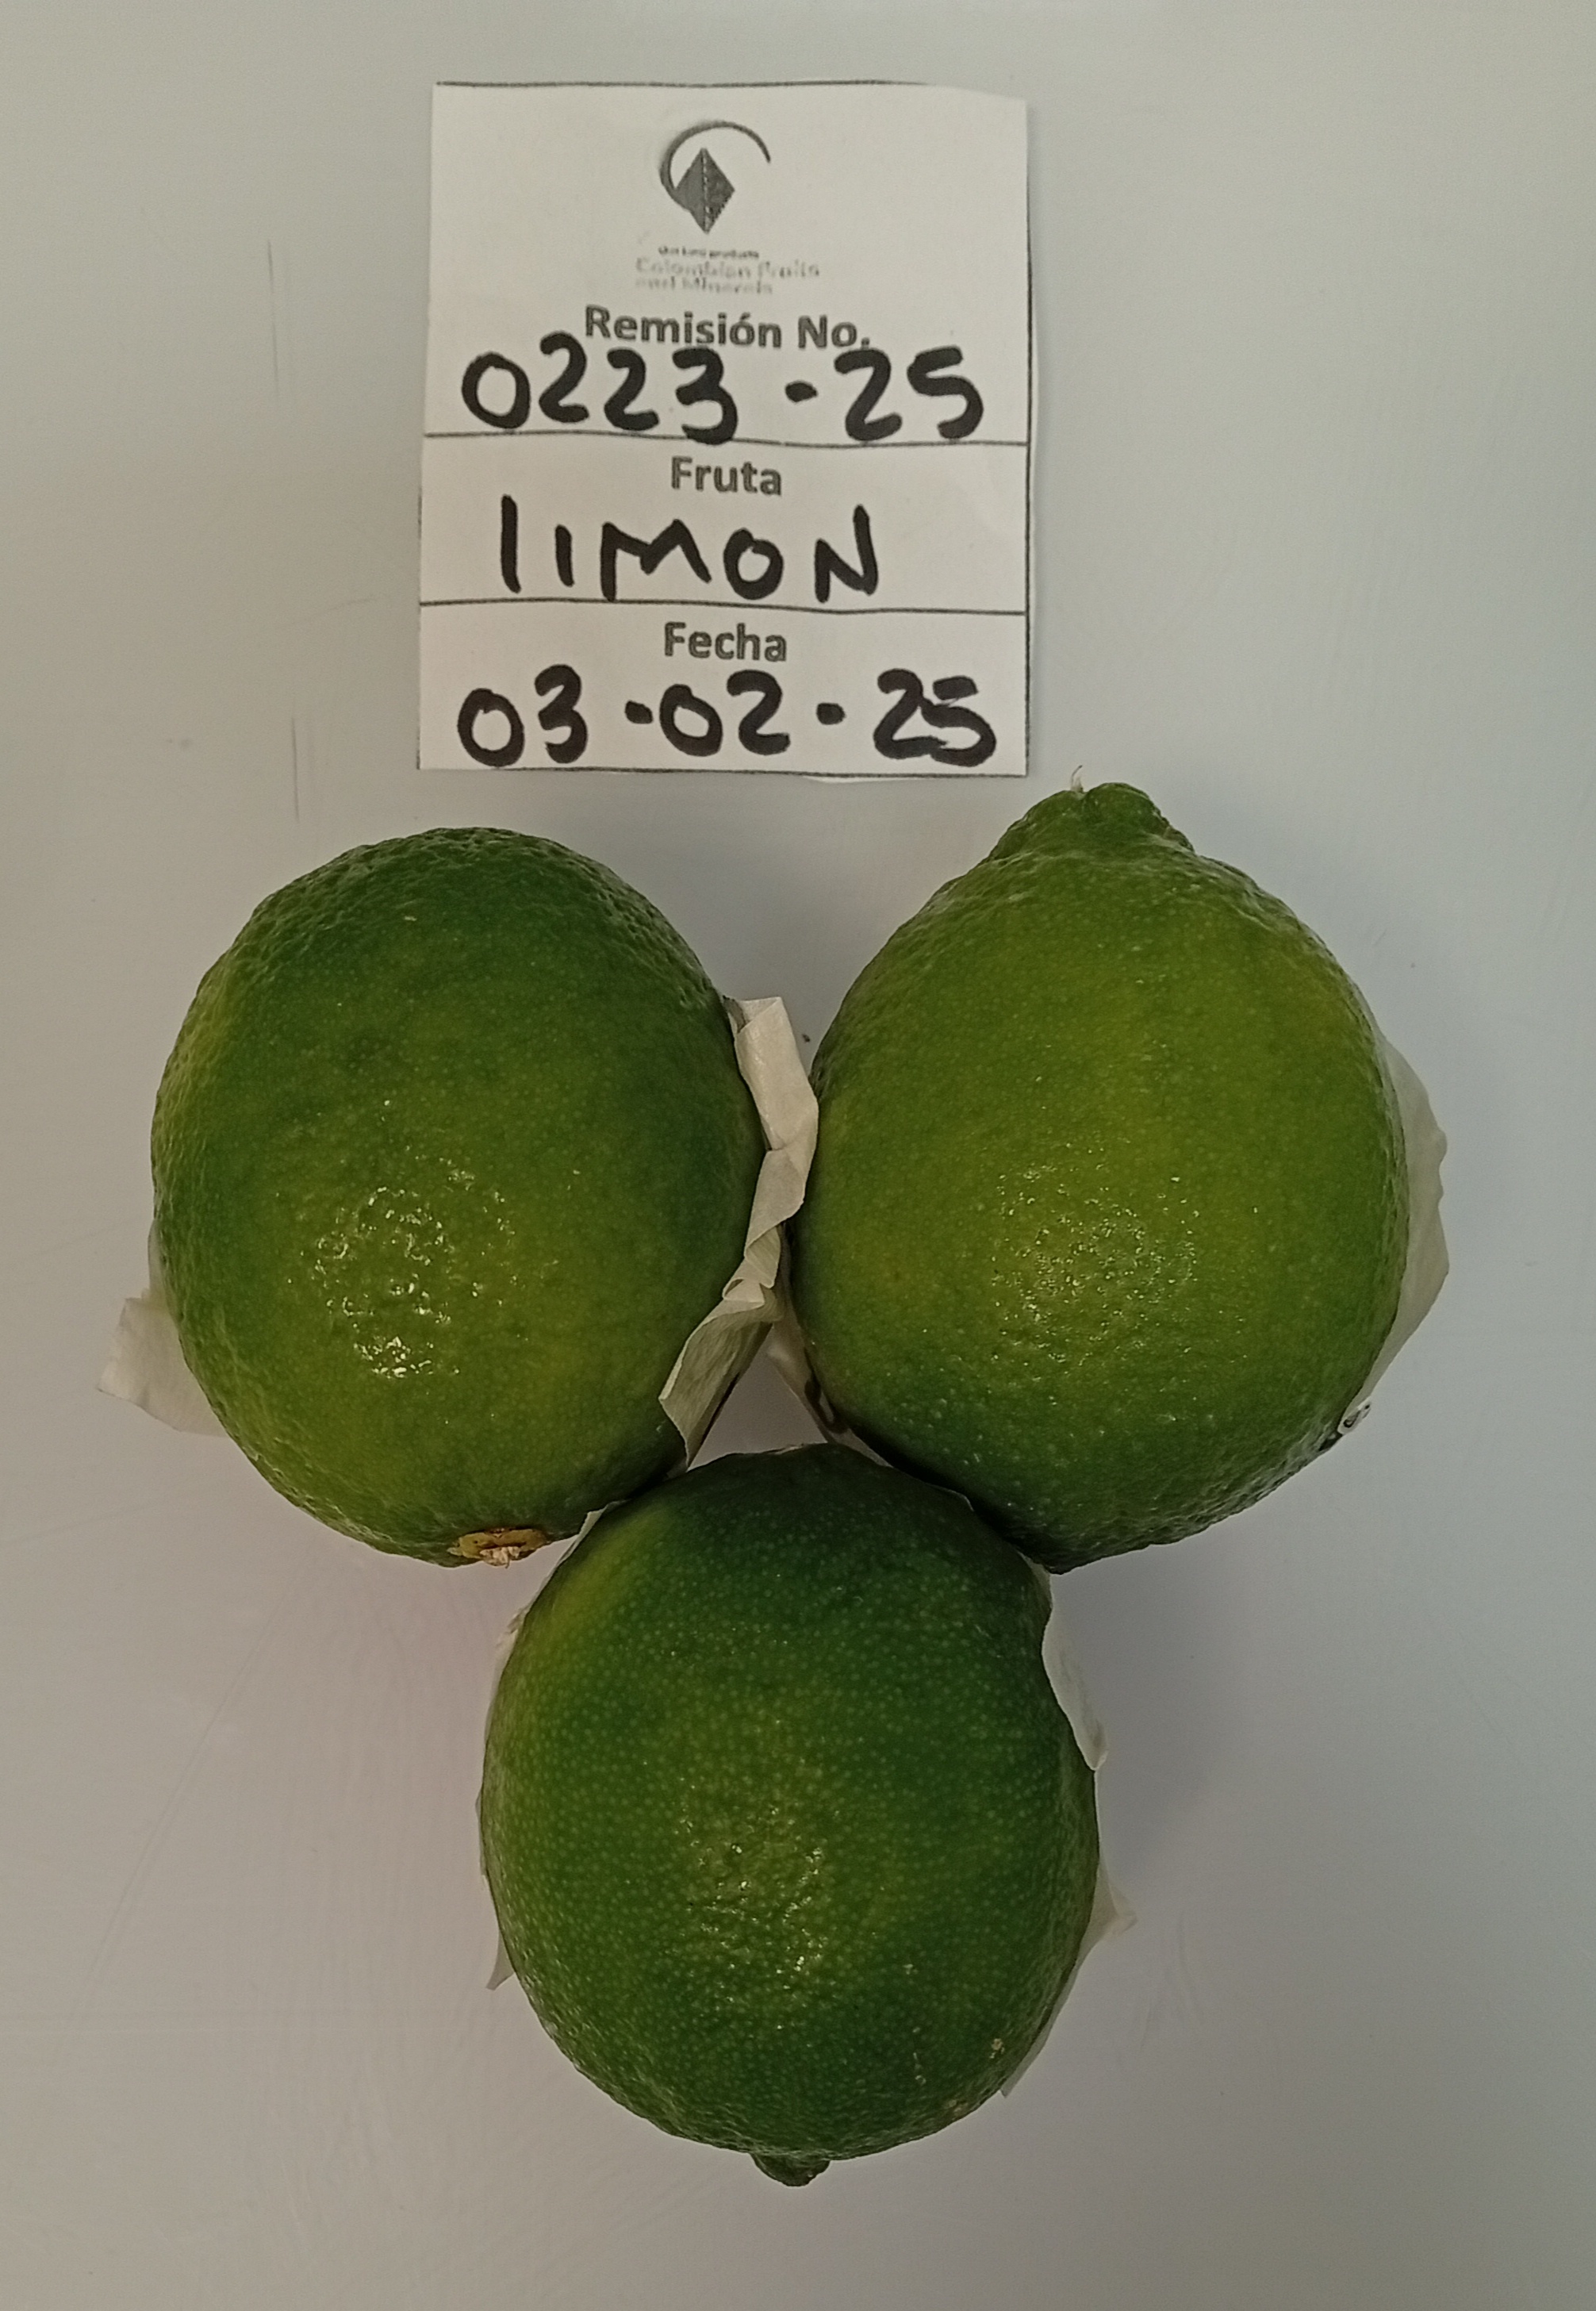 Colombian Fruits
and Minerals
Remisión No.
0223-25
Fruta
lIMON
Fecha
03-02-25